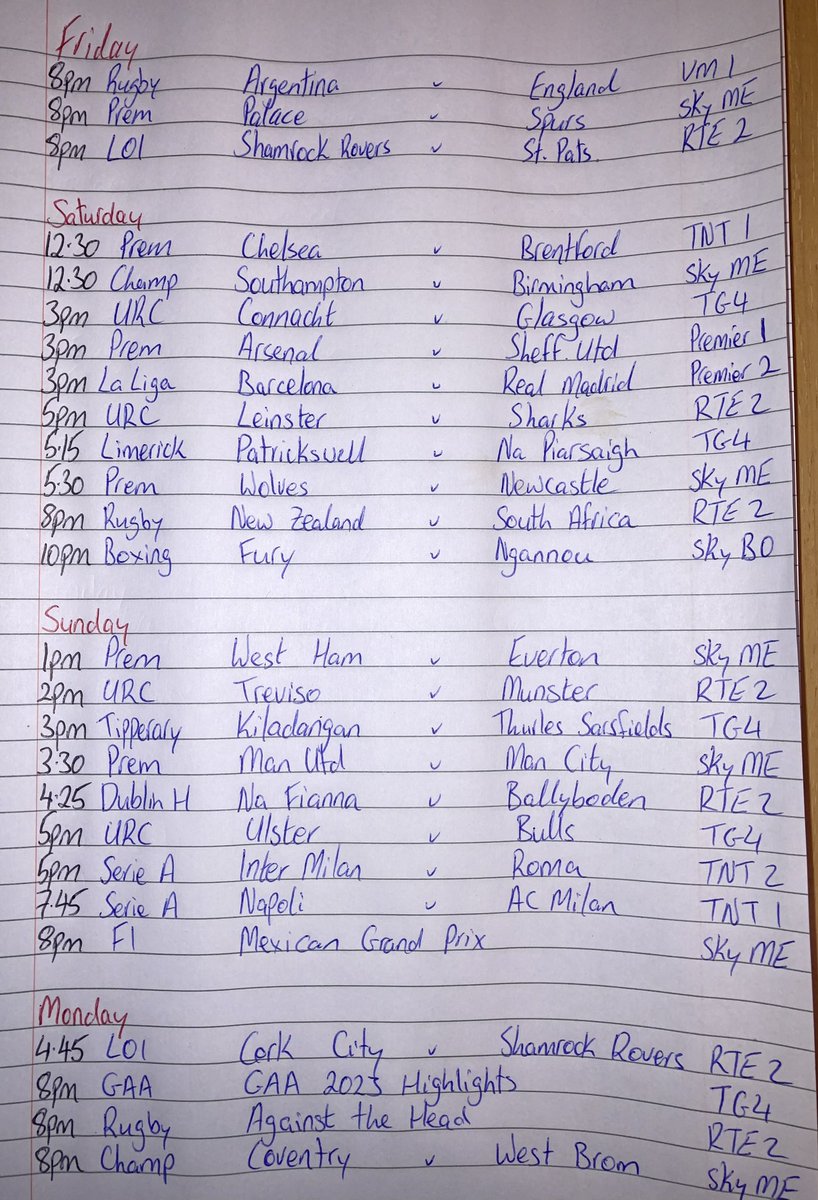 Friday
8pm Rugby Argentina v England VM1
8pm Prem Palace v Spurs Sky ME
8pm LOI Shamrock Rovers v St. Pats. RTE 2
Saturday
12:30 Prem Chelsea v Brentford TNT 1
12:30 Champ Southampton v Birmingham Sky ME
3pm URC Connacht v Glasgow TG4
3pm Prem Arsenal v Sheff Utd Premier 1
3pm La Liga Barcelona v Real Madrid Premier 2
5pm URC Leinster v Sharks RTE 2
5:15 Limerick Patrickswell v Na Piarsaigh TG4
5:30 Prem Wolves v Newcastle Sky ME
8pm Rugby New Zealand v South Africa RTE 2
10pm Boxing Fury v Ngannou Sky BO
Sunday
1pm Prem West Ham v Everton Sky ME
2pm URC Treviso v Munster RTE 2
3pm Tipperary Kiladangan v Thurles Sarsfields TG4
3:30 Prem Man Utd v Man City Sky ME
4:25 Dublin H Na Fianna v Ballyboden RTE 2
5pm URC Ulster v Bulls TG4
5pm Serie A Inter Milan v Roma TNT 2
7.45 Serie A Napoli v AC Milan TNT 1
8pm F1 Mexican Grand Prix Sky ME
Monday
4.45 LOI Cork City v Shamrock Rovers RTE 2
8pm GAA GAA 2023 Highlights TG4
8pm Rugby Against the Head RTE 2
8pm Champ Coventry v West Brom Sky ME